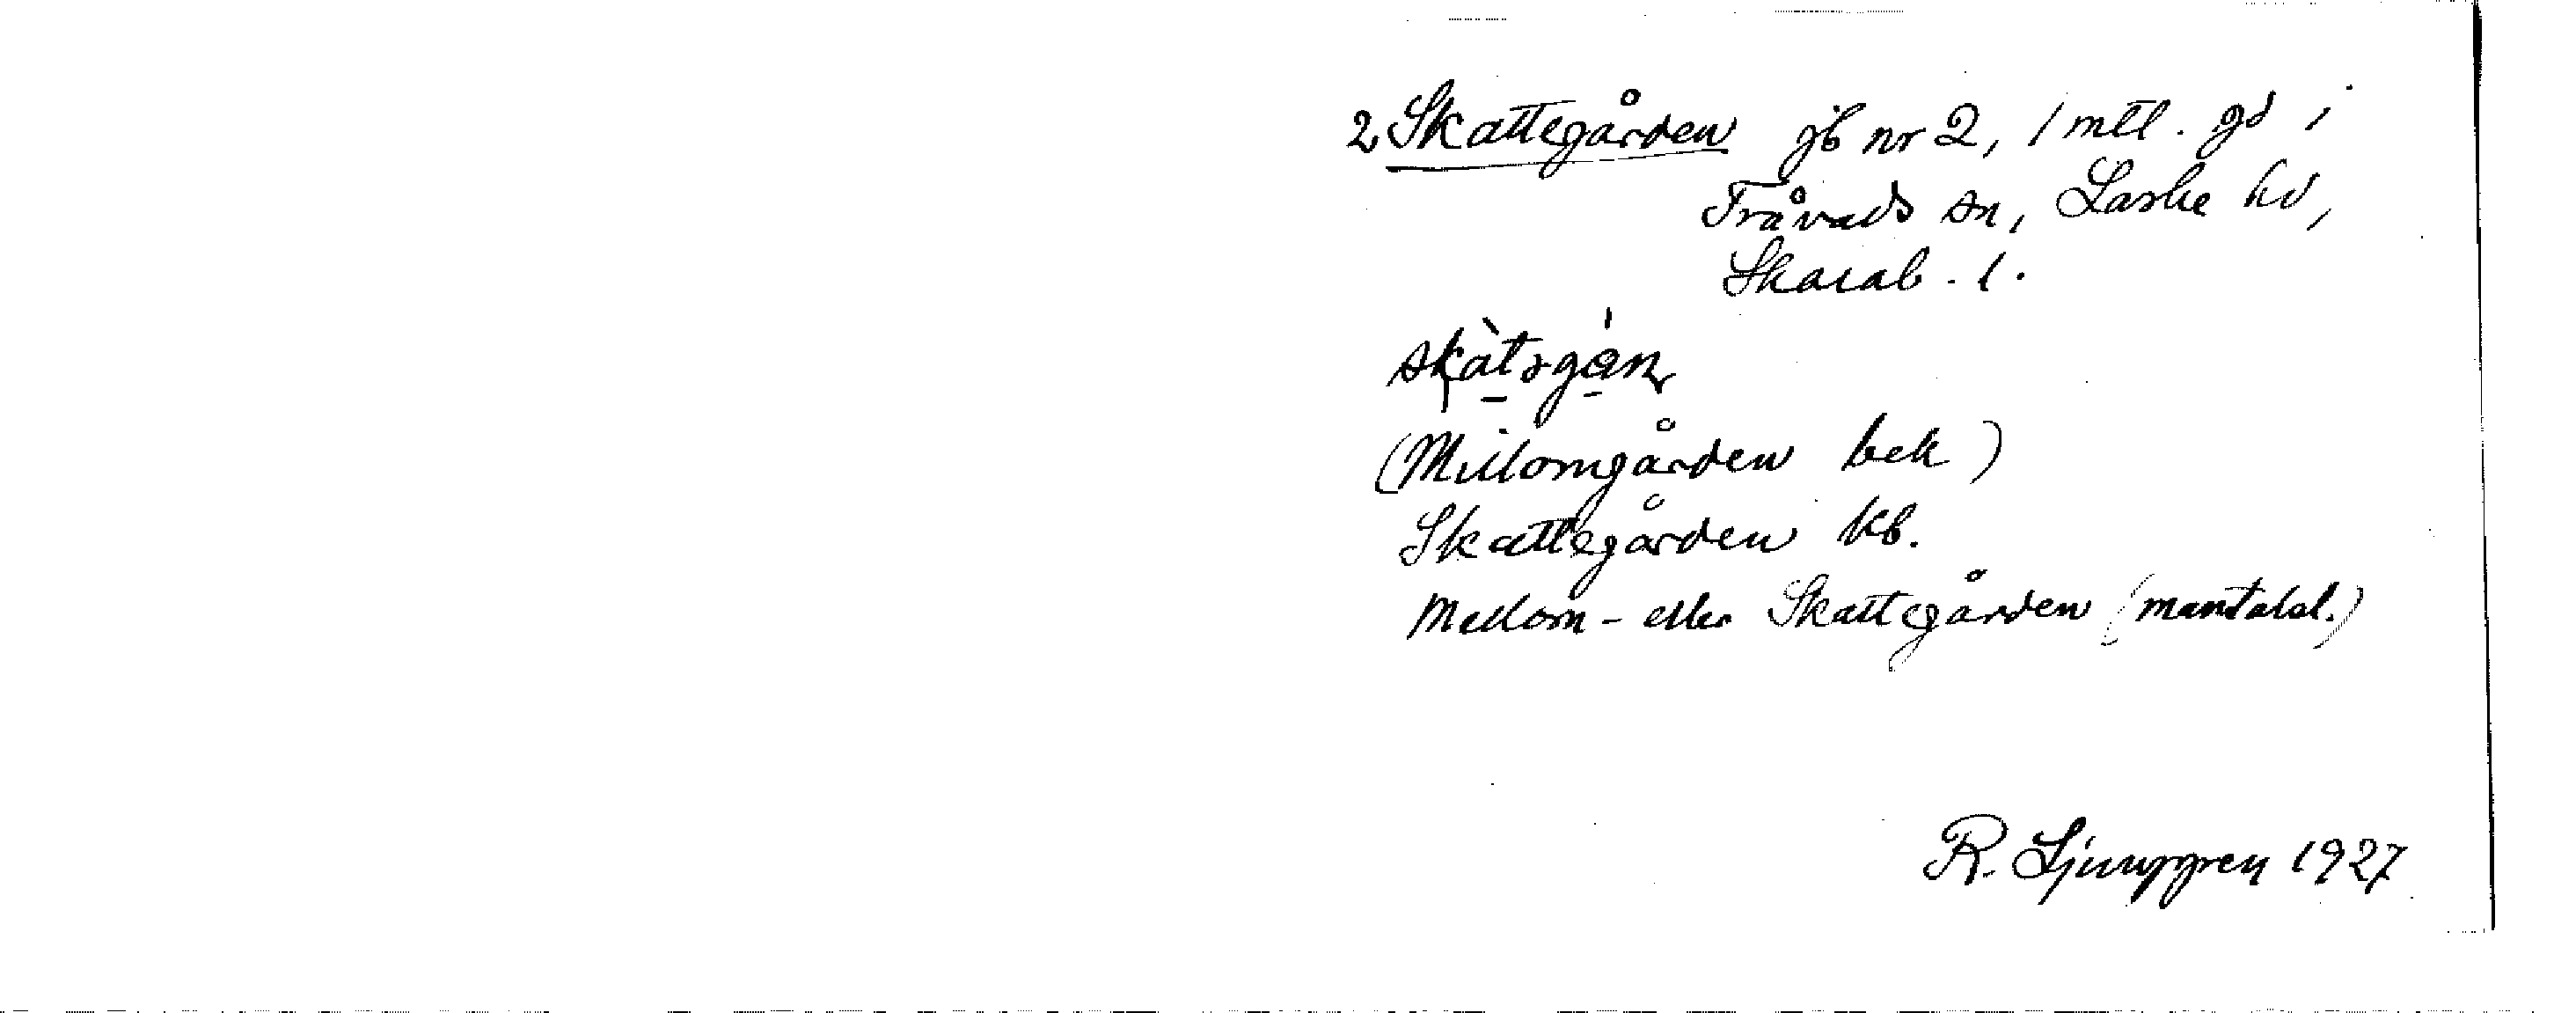 2 Skattegården jb nr 2, 1 mtl. gd i
Tråvads sn, Laske hd,
Skarab. l.
skàtəgán
(Millomgården bek)
Skattegården kb.
Mellom- eller Skattegården (mantalsl.)
R. Ljunggren 1927